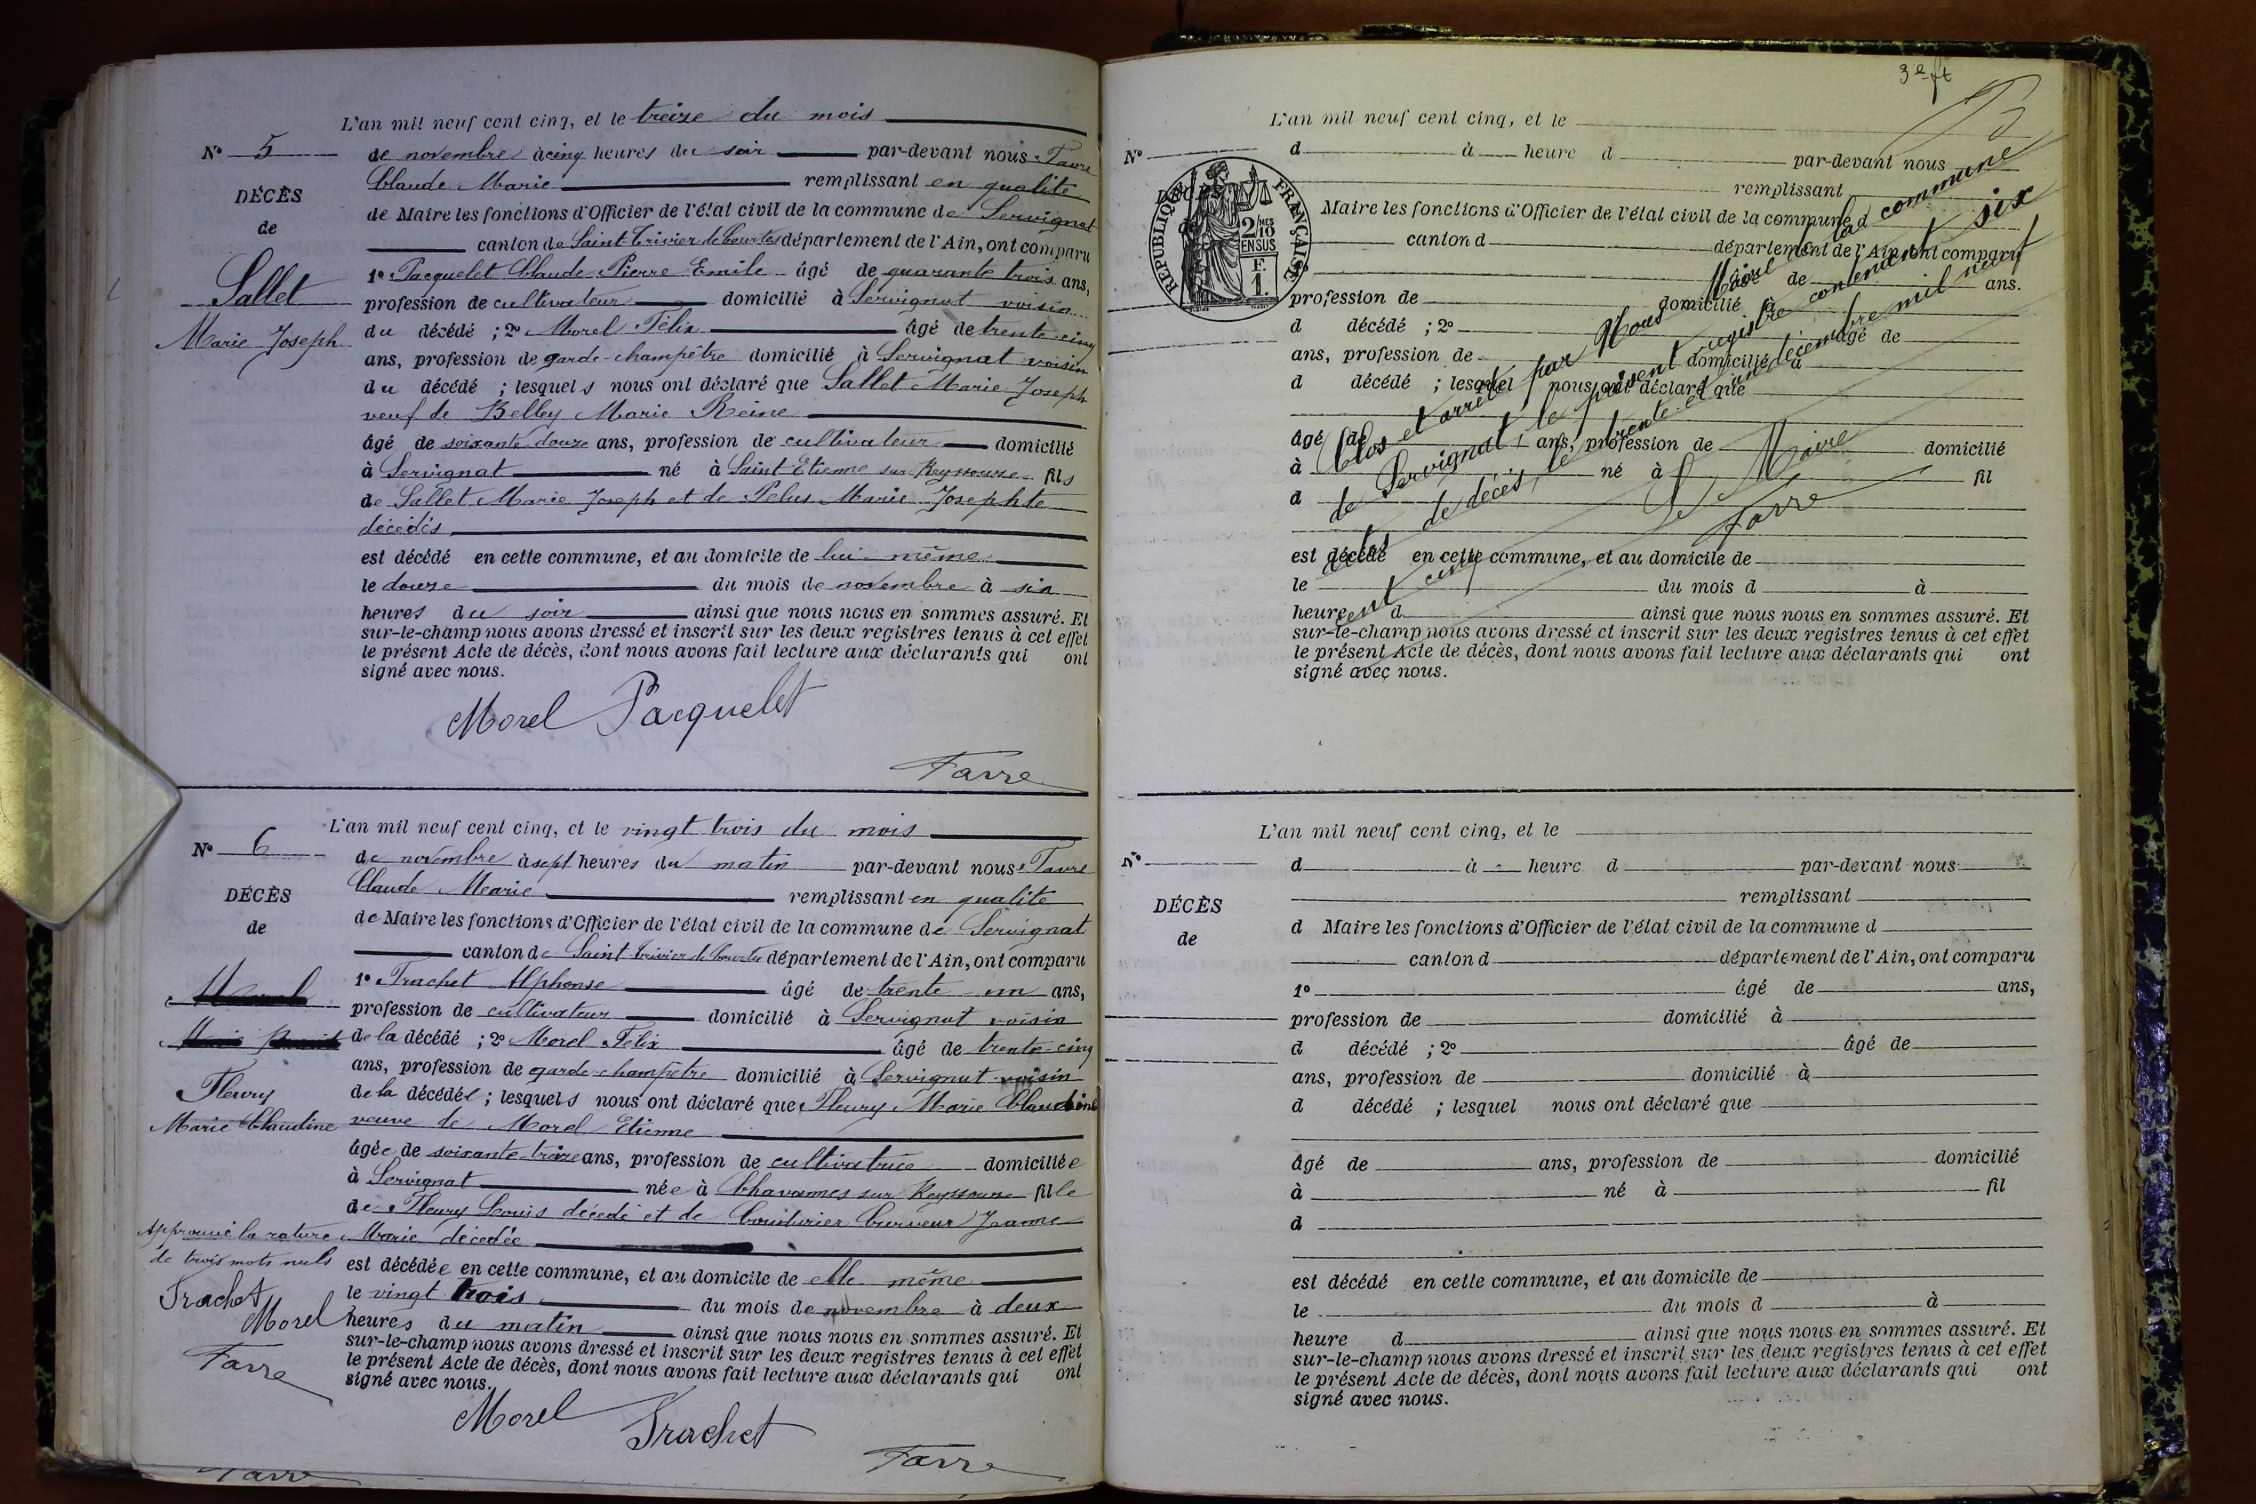 L'an mil neuf cent cinq, et le treize du mois
N° 5
de novembre à cinq heures du soir par-devant nous Favre
Claude Marie remplissant en qualité
DÉCÈS
de Maire les fonctions d'Officier de l'état civil de la commune de Servignat
de
canton de Saint-Trivier de Courtes département de l'Ain, ont comparu
1° Pacquelet Claude Pierre Emile âgé de quarante trois ans,
Sallet
profession de cultivateur domicilié à Servignat voisin
Marie Joseph
du décédé ; 2° Morel Félix âgé de trente-cinq
ans, profession de garde-champêtre domicilié à Servignat voisin
du décédé ; lesquels nous ont déclaré que Sallet Marie Joseph
veuf de Belley Marie Reine
âgé de soixante douze ans, profession de cultivateur domicilié
à Servignat né à Saint Etienne sur Reyssouze fils
de Sallet Marie Joseph et de Pelus Marie Josephte
décédés
est décédé en cette commune, et au domicile de lui-même
le douze du mois de novembre à six
heures du soir ainsi que nous nous en sommes assuré. Et
sur-le-champ nous avons dressé et inscrit sur les deux registres tenus à cet effet
le présent Acte de décès, dont nous avons fait lecture aux déclarants qui ont
signé avec nous.
Morel Pacquelet
Favre
L'an mil neuf cent cinq, et le vingt trois du mois
N° 6
de novembre à sept heures du matin par-devant nous Favre
Claude Marie remplissant en qualité
DÉCÈS
de Maire les fonctions d'Officier de l'état civil de la commune de Servignat
de
canton de Saint Trivier de Courtes département de l'Ain, ont comparu
1° Trachet Alphonse âgé de trente un ans,
profession de cultivateur domicilié à Servignat voisin
de la décédé ; 2° Morel Félix âgé de trente-cinq
ans, profession de garde-champêtre domicilié à Servignat voisin
Fleury
de la décédée ; lesquels nous ont déclaré que Fleury Marie Claudine
Marie Claudine
veuve de Morel Etienne
âgée de soixante-treize ans, profession de cultivatrice domiciliée
à Servignat née à Chavannes sur Reyssouze fille
de Fleury Louis décédé et de Jeanne
Approuvé la rature
Marie décédée
de trois mots nuls
est décédée en cette commune, et au domicile de elle même
Trachet
le vingt trois du mois de novembre à deux
Morel
heures du matin ainsi que nous nous en sommes assuré. Et
Favre
sur-le-champ nous avons dressé et inscrit sur les deux registres tenus à cet effet
le présent Acte de décès, dont nous avons fait lecture aux déclarants qui ont
signé avec nous.
Morel
Trachet
Favre
Favre
3e ft
L'an mil neuf cent cinq, et le
N°
d à heure d par-devant nous
remplissant
Maire les fonctions d'Officier de l'état civil de la commune d
canton d département de l'Ain, ont comparu
âgé de ans.
profession de domicilié à
d décédé ; 2° âgé de
ans, profession de domicilié à
d décédé ; lesquel nous ont déclaré que
âgé de ans, profession de domicilié
à né à fil
d
est décédé en cette commune, et au domicile de
le du mois d à
heure d ainsi que nous nous en sommes assuré. Et
sur-le-champ nous avons dressé et inscrit sur les deux registres tenus à cet effet
le présent Acte de décès, dont nous avons fait lecture aux déclarants qui ont
signé avec nous.
RÉPUBLIQUE FRANÇAISE
2/10 MES
EN SUS
F.
1.
Clos et arrêté par Nous Maire de la commune
de Servignat, le présent registre contenant six
actes de décès, le trente et un décembre mil neuf
cent cinq
Le Maire
Favre
L'an mil neuf cent cinq, et le
N°
d à heure d par-devant nous
remplissant
DÉCÈS
d Maire les fonctions d'Officier de l'état civil de la commune d
de
canton d département de l'Ain, ont comparu
1° âgé de ans,
profession de domicilié à
d décédé ; 2° âgé de
ans, profession de domicilié à
d décédé ; lesquel nous ont déclaré que
âgé de ans, profession de domicilié
à né à fil
d
est décédé en cette commune, et au domicile de
le du mois d à
heure d ainsi que nous nous en sommes assuré. Et
sur-le-champ nous avons dressé et inscrit sur les deux registres tenus à cet effet
le présent Acte de décès, dont nous avons fait lecture aux déclarants qui ont
signé avec nous.